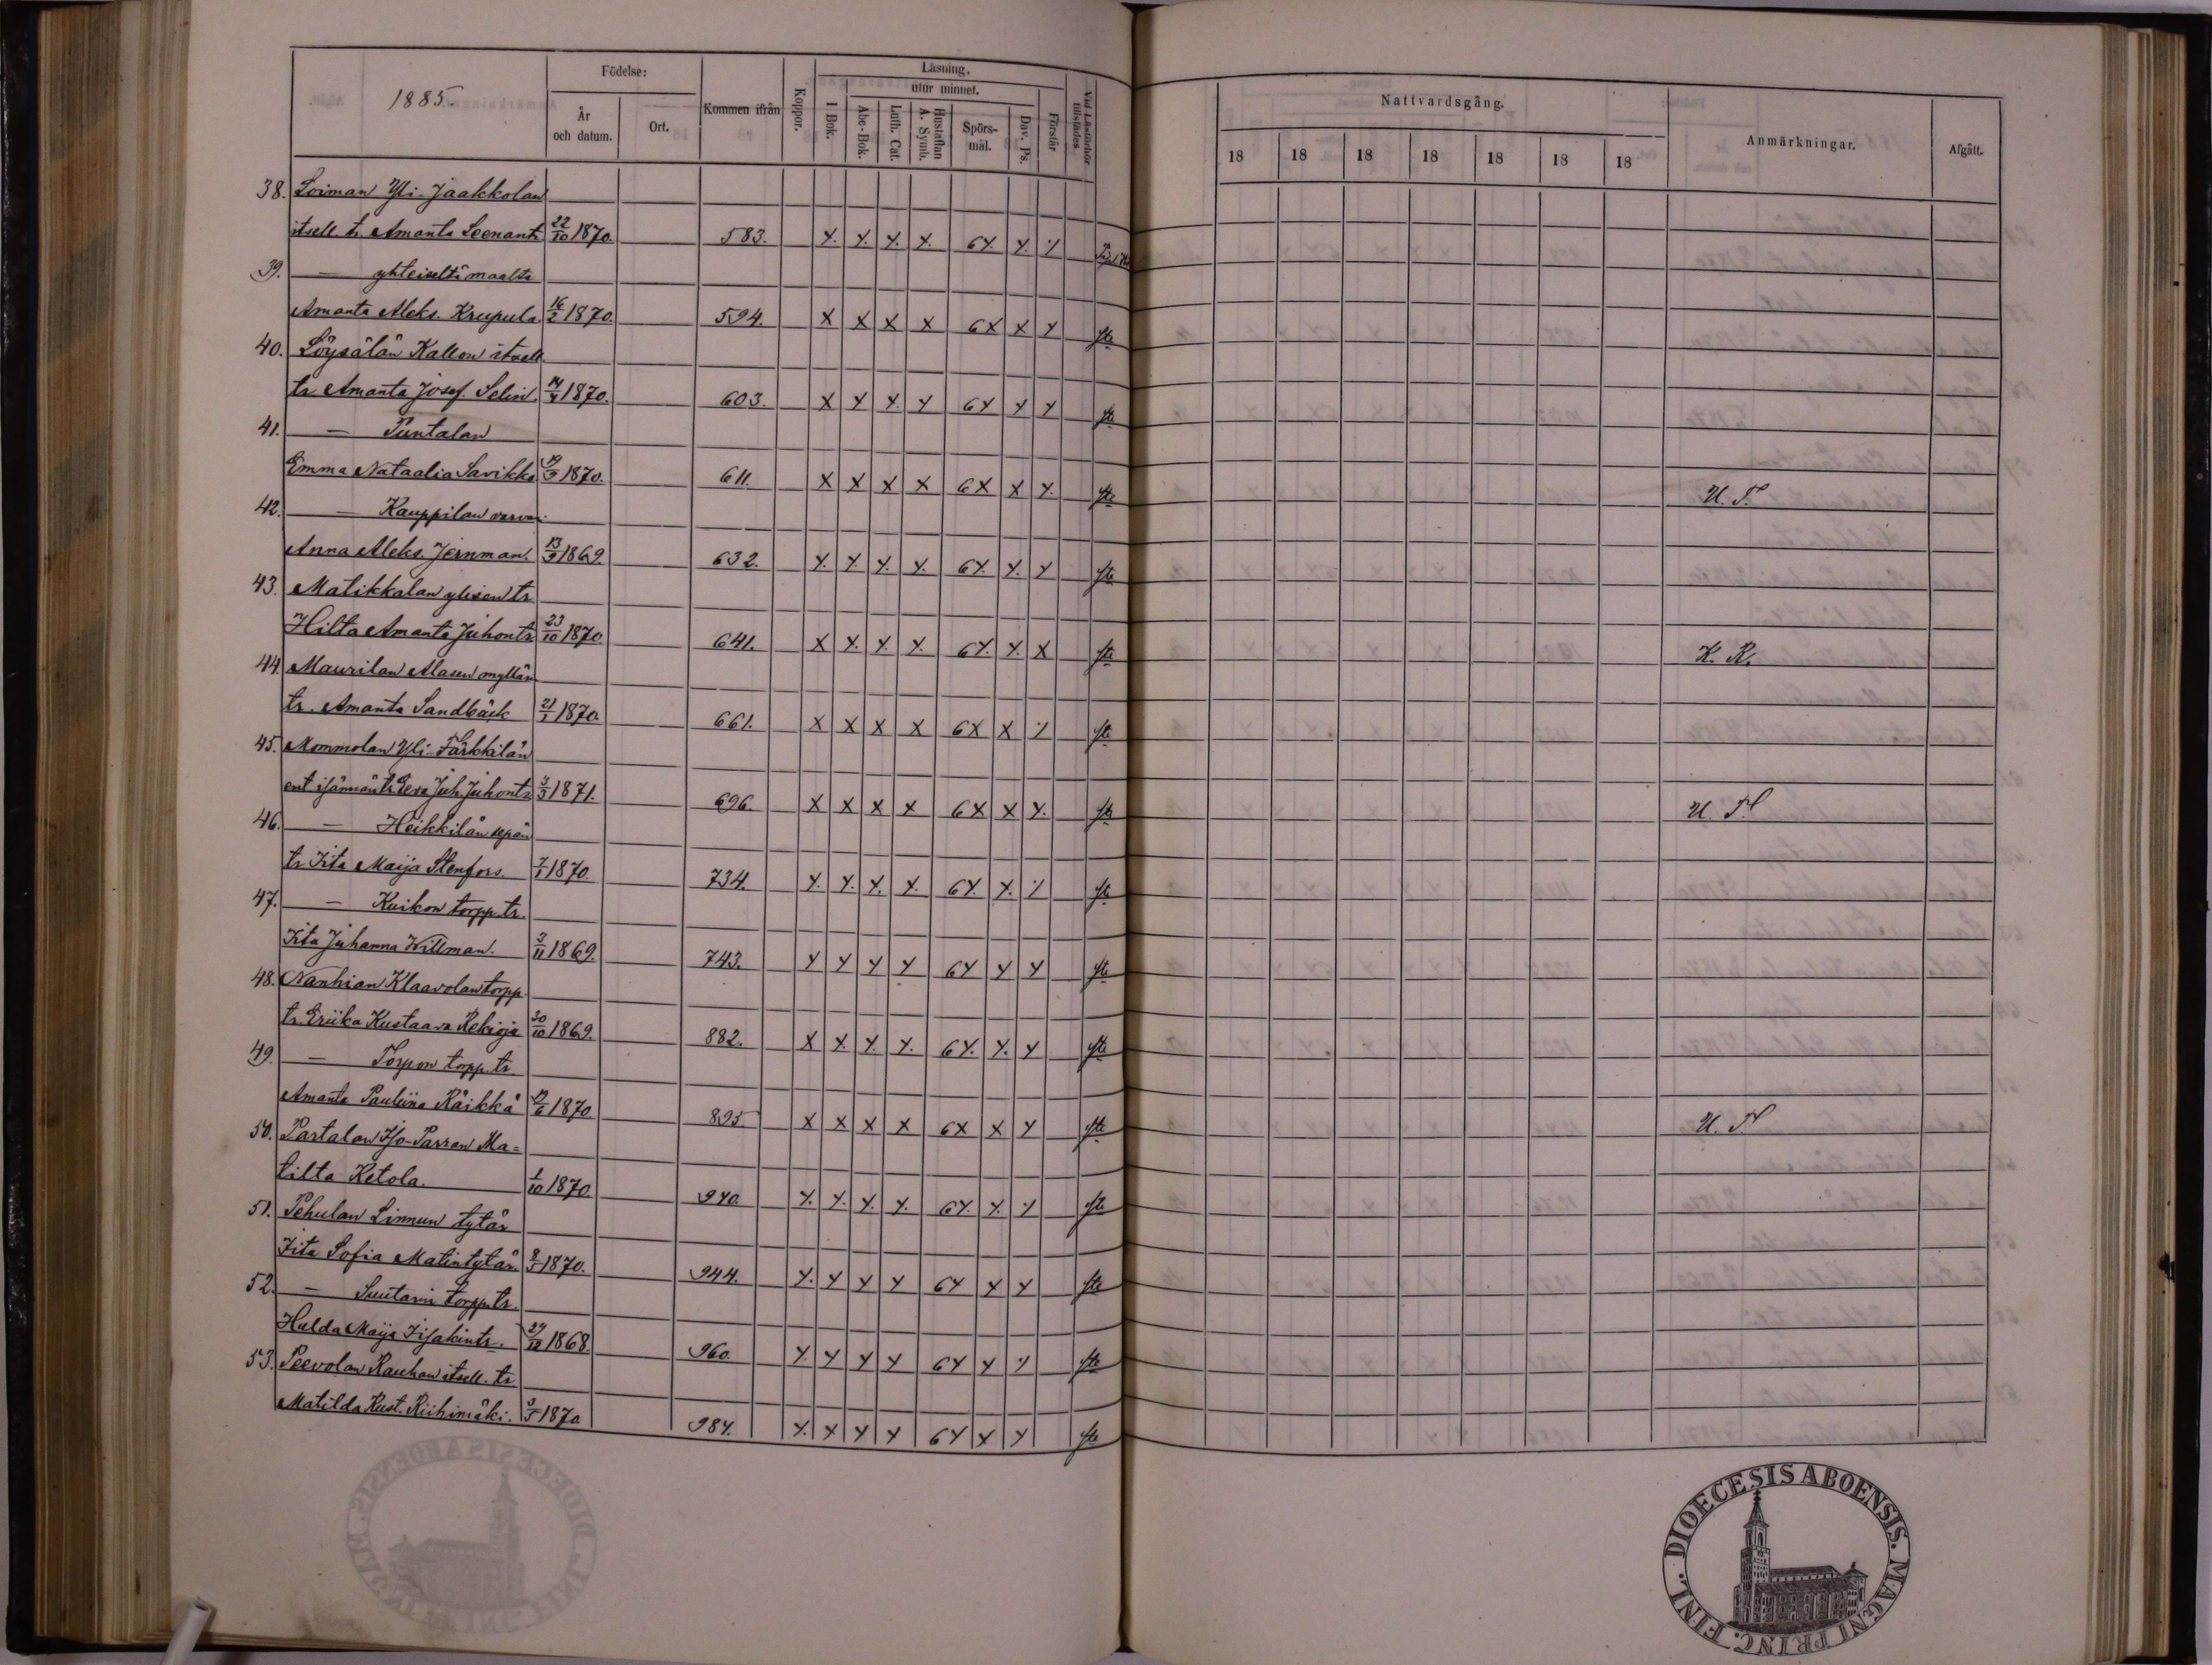 1885.
Födelse:
År och datum.
Ort.
Kommen ifrån
Koppor.
Läsning.
I Bok.
utur minnet.
Abc-Bok.
Luth. Cat.
Hustaflan A. Symb.
Spörsmål.
Dav. Ps.
Förstår
Vid Läsförhör tillstädes
Nattvardsgång.
18 18 18 18 18 18 18
Anmärkningar.
Afgått.
38. Loiman Yli-Jaakkolan
itsell. tr. Amanta Leenantr. 22/10 1870. 583. X X X X 6X X X
39. — yhteiseltä maalta
Amanta Aleks. Krupula 16/2 1870. 594. X X X X 6X X X
40. Löysälän Kallon itsell.
tr. Amanta Josef. Selin. 1870. 603. X X X X 6X X X
41. — Puntalan
Emma Nataalia Savikko 1870. 611. X X X X 6X X X U. T.
42. — Kauppilan
Anna Aleks. Jernman. 13/9 1869. 632. X X X X 6X X X
43. Matikkalan ylisen tr.
Hilta Amanta Juhontr. 23/10 1870. 641. X X X X 6X X X K. R.
44. Maurilan Alasen myllär.
tr. Amanta Sandbäck 21/1 1870. 661. X X X X 6X X X
45. Mommolan Yli-Tarkkilän
ent isännän tr. Eeva Juh. Juhontr. 1871. 696. X X X X 6X X X U. T.
46. — Heikkilän sepän
tr. Iita Maija Stenfors. 7/1 1870. 734. X X X X 6X X X
47. — Kuikon torpp. tr.
Iita Juhanna Willman. 3/11 1869. 743. X X X X 6X X X
48. Nanhian Klaavolan torpp.
tr. Eriika Kustaava Rekioja 30/10 1869. 882. X X X X 6X X X
49. — Torpon torpp. tr.
Amanta Pauliina Räikkä 1870 895 X X X X 6X X X U. T.
50. Partalan Iso-Parran Ma=
tilta Ketola. 1/10 1870. 940. X X X X 6X X X
51. Pehulan Linnun tytär
Iita Sofia Matintytär. 1870. 944. X X X X 6X X X
52. — Suutarin torpp. tr.
Hulda Maija Iisakintr. 29/12 1868. 960. X X X X 6X X X
53. Peevolan Rauhan itsell. tr
Matilda Kust. Riihimäki. 1870 984. X X X X 6X X X
DIOECESIS ABOENSIS. MAGNI PRINC. FINL.